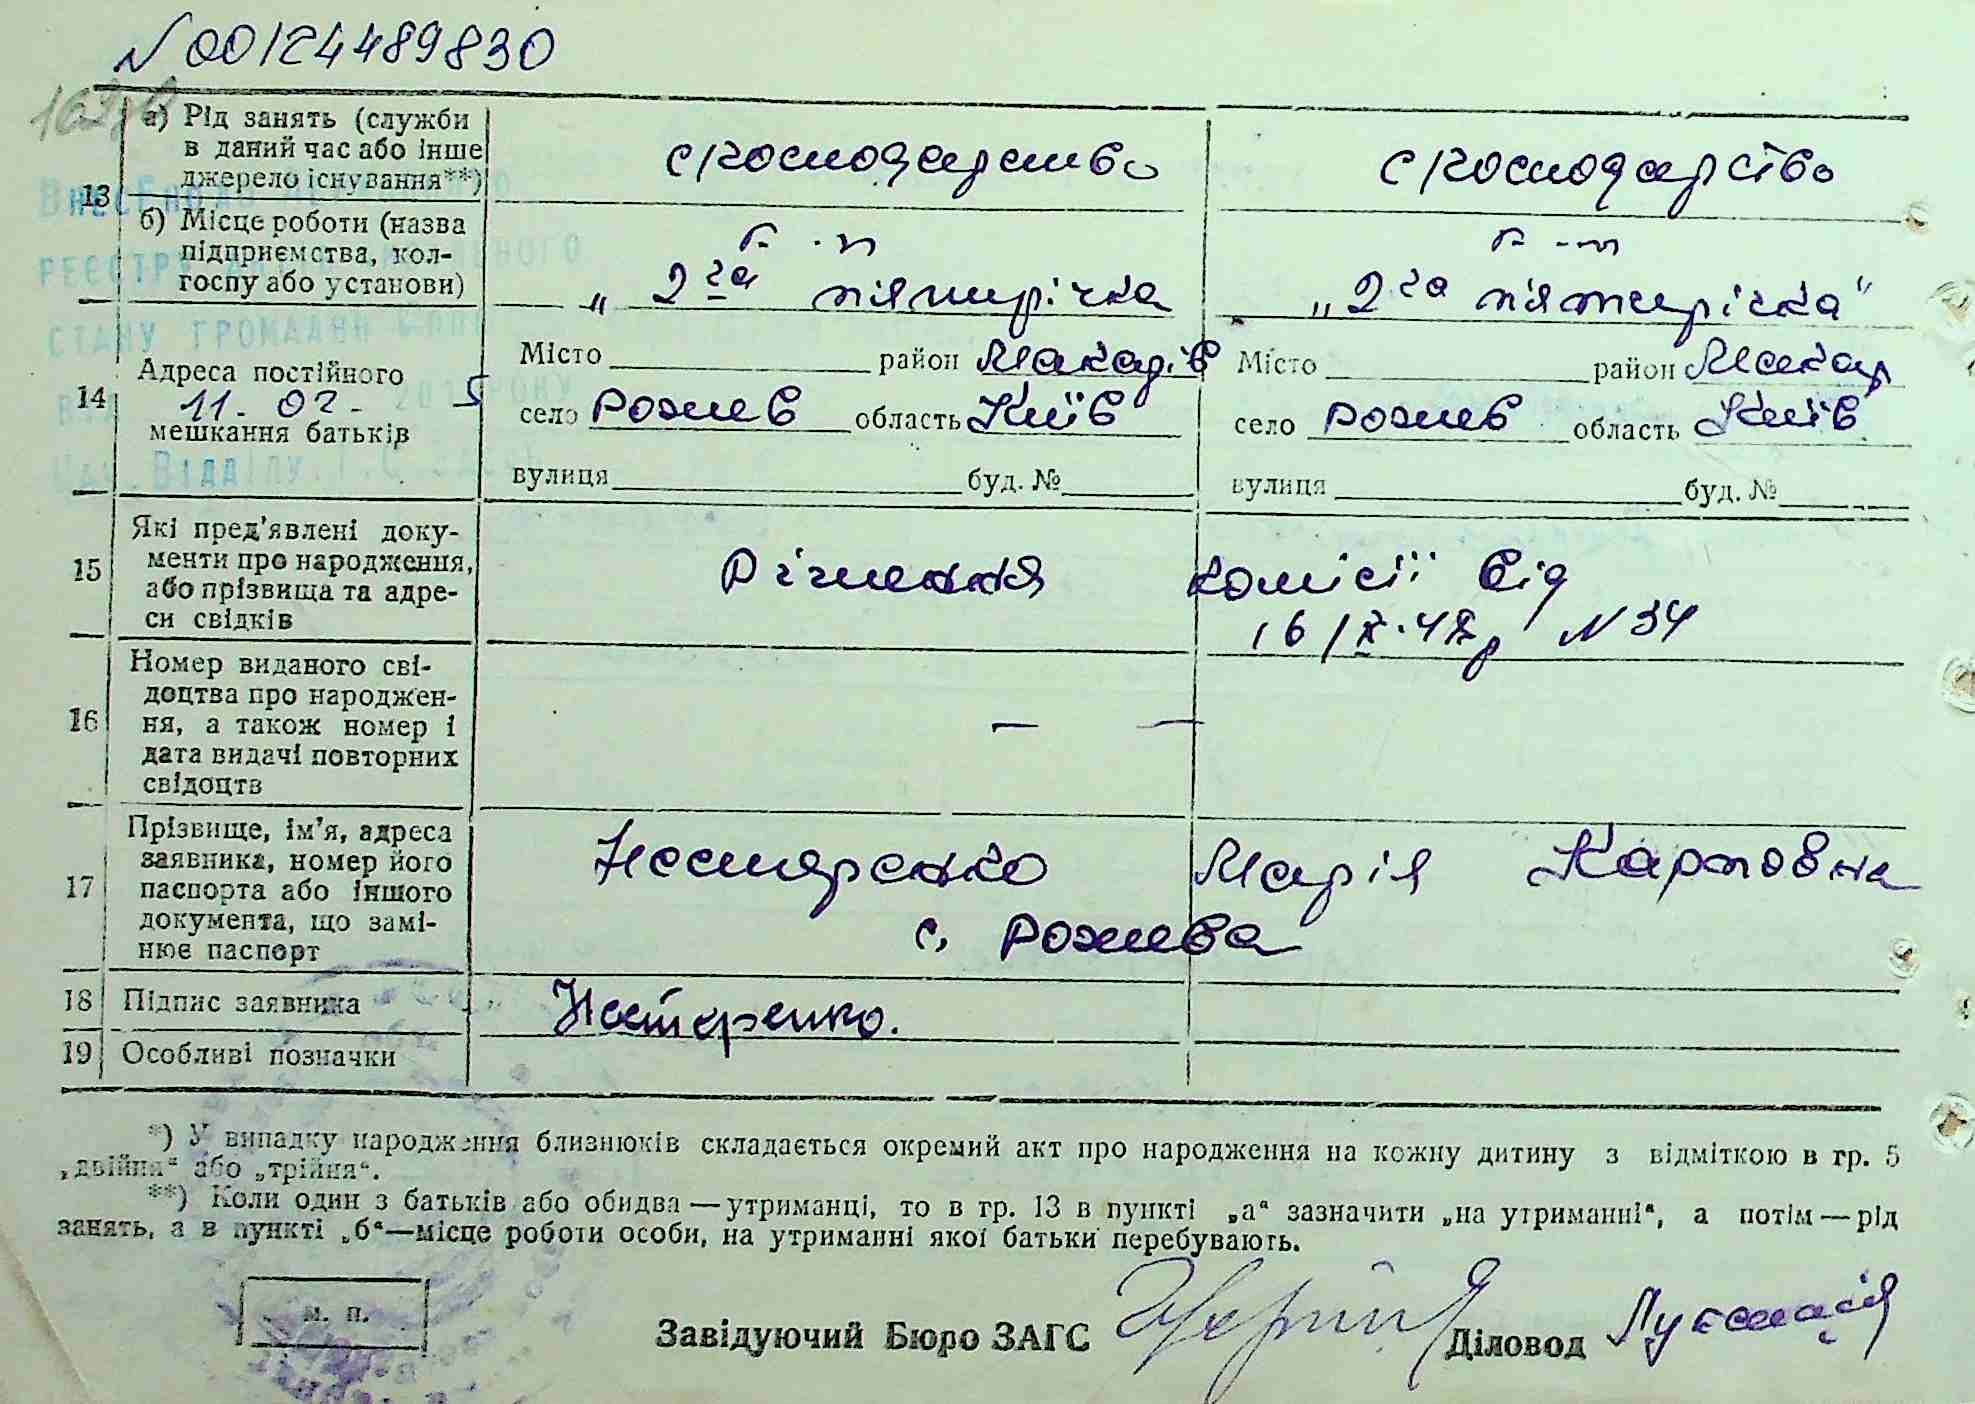 N 00124489830
13
а) Рід занять (служби
в даний час або інше
джерело існування**)
с/господарство
с/господарство
б) Місце роботи (назва
підприємства, кол-
госпу або установи)
к-п
„ 2га пятирічка
к-п
„2га пятирічка“
ВнесЕно до
РЕЄСТРУ
СТАНУ ГРОМАДЯН
РОКУ
Нач. Відділу
14
Адреса постійного
11. 02.
мешкання батьків
Місто район Макарів
село Рожев область Київ
вулиця буд. №
Місто район Макар
село Рожев область Київ
вулиця буд. №
15
Які пред’явлені доку-
менти про народження,
або прізвища та адре-
си свідків
Рішення комісії від
16/ІХ. N 34
16
Номер виданого сві-
доцтва про народжен-
ня, а також номер і
дата видачі повторних
свідоцтв
— —
17
Прізвище, ім’я, адреса
заявника, номер його
паспорта або іншого
документа, що замі-
нює паспорт
Нестеренко Марія Карповна
с. Рожева
18 Підпис заявника Нестеренко.
19 Особливі позначки
*) У випадку народження близнюків складається окремий акт про народження на кожну дитину з відміткою в гр. 5
„двійня“ або „трійня“.
**) Коли один з батьків або обидва—утриманці, то в гр. 13 в пункті „а“ зазначити „на утриманні“, а потім—рід
занять, а в пункті „б“—місце роботи особи, на утриманні якої батьки перебувають.
м. п.
Завідуючий Бюро ЗАГС Діловод